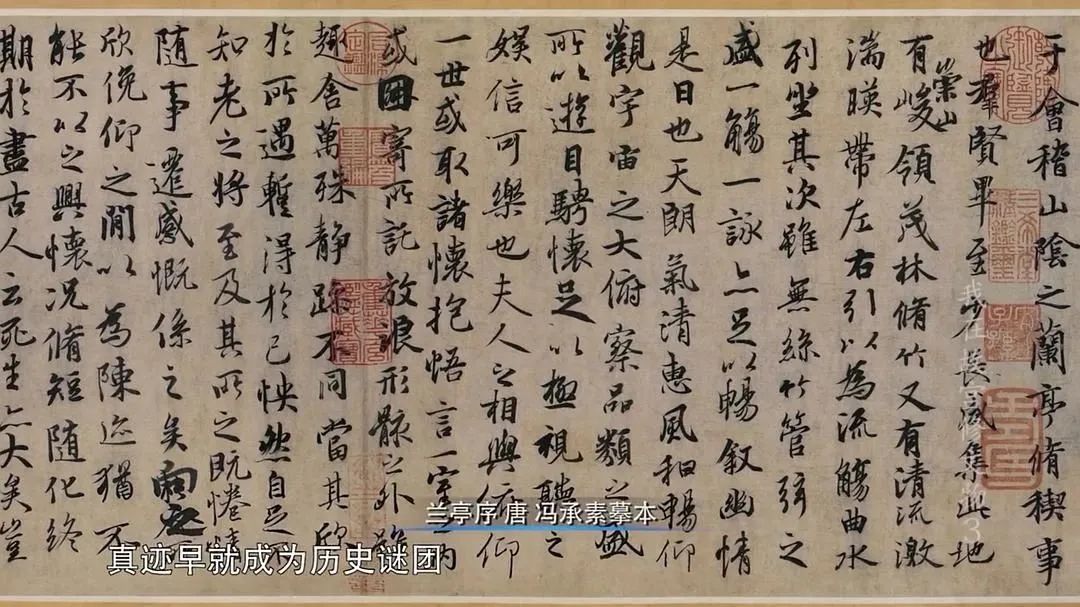 于會稽山陰之蘭亭脩稧事
也羣賢畢至少長咸集此地
有崇山峻領茂林脩竹又有清流激
湍暎帶左右引以為流觴曲水
列坐其次雖無絲竹管弦之
盛一觴一詠亦足以暢敘幽情
是日也天朗氣清惠風和暢仰
觀宇宙之大俯察品類之盛
所以遊目騁懷足以極視聽之
娛信可樂也夫人之相與俯仰
一世或取諸懷抱悟言一室之內
或因寄所託放浪形骸之外雖
趣舍萬殊靜躁不同當其欣
於所遇蹔得於己怏然自足不
知老之將至及其所之既惓情
隨事遷感慨係之矣向之所
欣俛仰之閒以為陳迹猶不
能不以之興懷況脩短隨化終
期於盡古人云死生亦大矣豈
兰亭序 唐 冯承素摹本
真迹早就成为历史谜团